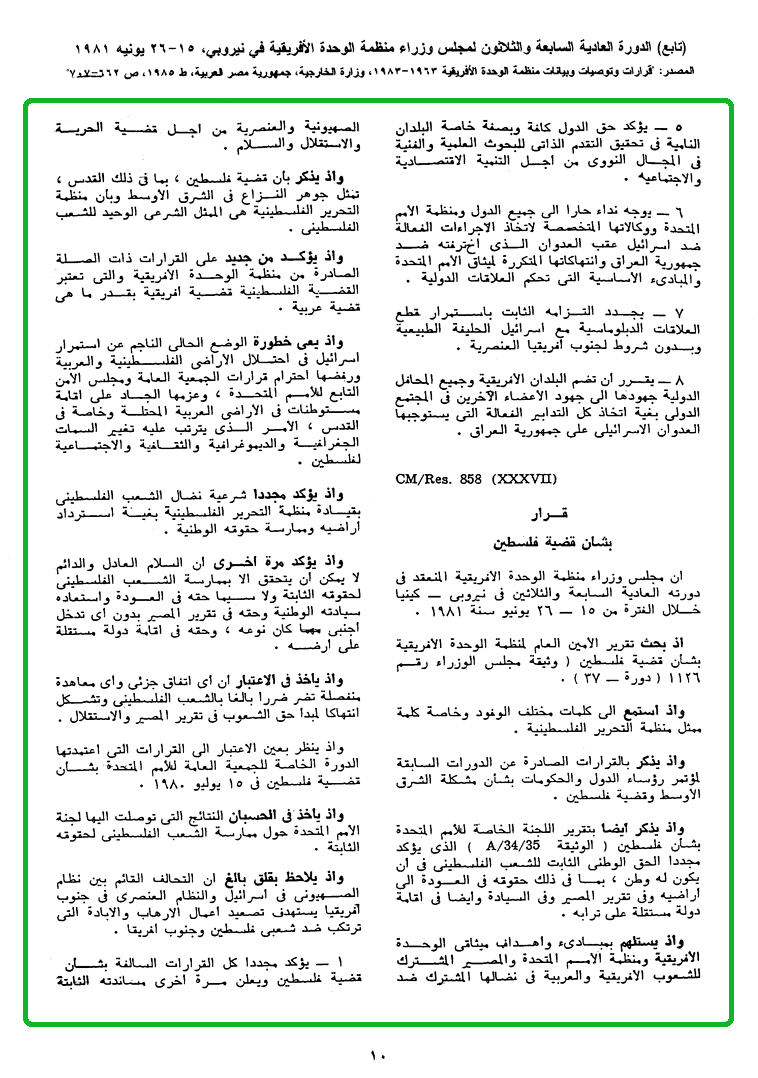 (تابع) الدورة العادية السابعة والثلاثون لمجلس وزراء منظمة الوحدة الأفريقية في نيروبي، ١٥-٢٦ يونيه ١٩٨١
المصدر: "قرارات وتوصيات وبيانات منظمة الوحدة الأفريقية ١٩٦٣-١٩٨٣، وزارة الخارجية، جمهورية مصر العربية، ط ١٩٨٥، ص
٥ — يؤكد حق الدول كافة وبصفة خاصة البلدان
النامية فى تحقيق التقدم الذاتى للبحوث العلمية والفنية
فى المجال النووى من اجل التنمية الاقتصادية
والاجتماعيه .
٦ — يوجه نداء حارا الى جميع الدول ومنظمة الامم
المتحدة ووكالاتها المتخصصة لاتخاذ الاجراءات الفعالة
ضد اسرائيل عقب العدوان الذى اقترفته ضد
جمهورية العراق وانتهاكاتها المتكررة لميثاق الامم المتحدة
والمبادىء الأساسية التى تحكم العلاقات الدولية .
٧ — يجدد التزامه الثابت باستمرار قطع
العلاقات الدبلوماسية مع اسرائيل الحليفة الطبيعية
وبدون شروط لجنوب أفريقيا العنصرية .
٨ — يقرر ان تضم البلدان الأفريقية وجميع المحافل
الدولية جهودها الى جهود الأعضاء الآخرين فى المجتمع
الدولى بغية اتخاذ كل التدابير الفعالة التى يستوجبها
العدوان الاسرائيلى على جمهورية العراق .
CM/Res. 858 (XXXVII)
قرار
بشأن قضية فلسطين
ان مجلس وزراء منظمة الوحدة الافريقية المنعقد فى
دورته العادية السابعة والثلاثين فى نيروبى — كينيا
خلال الفترة من ١٥ — ٢٦ يونيو سنة ١٩٨١ .
اذ بحث تقرير الامين العام لمنظمة الوحدة الافريقية
بشأن قضية فلسطين ( وثيقة مجلس الوزراء رقم
١١٢٦ ( دورة — ٣٧ ) .
واذ استمع الى كلمات مختلف الوفود وخاصة كلمة
ممثل منظمة التحرير الفلسطينية .
واذ يذكر بالقرارات الصادرة عن الدورات السابقة
لمؤتمر رؤساء الدول والحكومات بشأن مشكلة الشرق
الأوسط وقضية فلسطين .
واذ يذكر أيضا بتقرير اللجنة الخاصة للأمم المتحدة
بشأن فلسطين ( الوثيقة A/34/35 ) الذى يؤكد
مجددا الحق الوطنى الثابت للشعب الفلسطينى فى أن
يكون له وطن ، بما فى ذلك حقوقه فى العودة الى
أراضيه وفى تقرير المصير وفى السيادة وايضا فى اقامة
دولة مستقلة على ترابه .
واذ يستلهم بمبادىء واهداف ميثاقى الوحدة
الأفريقية ومنظمة الامم المتحدة والمصير المشترك
للشعوب الافريقية والعربية فى نضالها المشترك ضد
الصهيونية والعنصرية من اجل قضية الحرية
والاستقلال والسلام .
واذ يذكر بان قضية فلسطين ، بما فى ذلك القدس ،
تمثل جوهر النزاع فى الشرق الأوسط وبأن منظمة
التحرير الفلسطينية هى الممثل الشرعى الوحيد للشعب
الفلسطينى .
واذ يؤكد من جديد على القرارات ذات الصلة
الصادرة من منظمة الوحدة الأفريقية والتى تعتبر
القضية الفلسطينية قضية افريقية بقدر ما هى
قضية عربية .
واذ يعى خطورة الوضع الحالى الناجم عن استمرار
اسرائيل فى احتلال الأراضى الفلسطينية والعربية
ورفضها احترام قرارات الجمعية العامة ومجلس الأمن
التابع للأمم المتحدة ، وعزمها الجاد على اقامة
مستوطنات فى الاراضى العربية المحتلة وخاصة فى
القدس ، الأمر الذى يترتب عليه تغيير السمات
الجغرافية والديموغرافية والثقافية والاجتماعية
لفلسطين .
واذ يؤكد مجددا شرعية نضال الشعب الفلسطينى
بقيادة منظمة التحرير الفلسطينية بغية استرداد
أراضيه وممارسة حقوقه الوطنية .
واذ يؤكد مرة اخرى ان السلام العادل والدائم
لا يمكن أن يتحقق الا بممارسة الشعب الفلسطينى
لحقوقه الثابتة ولا سيما حقه فى العودة واستعاده
سيادته الوطنية وحقه فى تقرير المصير بدون اى تدخل
أجنبى مهما كان نوعه ، وحقه فى اقامة دولة مستقلة
على أرضه .
واذ يأخذ فى الاعتبار ان أى اتفاق جزئى واى معاهدة
منفصلة تضر ضررا بالغا بالشعب الفلسطينى وتشكل
انتهاكا لمبدأ حق الشعوب فى تقرير المصير والاستقلال .
واذ ينظر بعين الاعتبار الى القرارات التى اعتمدتها
الدورة الخاصة للجمعية العامة للأمم المتحدة بشأن
قضية فلسطين فى ١٥ يوليو ١٩٨٠ .
واذ يأخذ فى الحسبان النتائج التى توصلت اليها لجنة
الأمم المتحدة حول ممارسة الشعب الفلسطينى لحقوقه
الثابتة .
واذ يلاحظ بقلق بالغ ان التحالف القائم بين نظام
الصهيونى فى اسرائيل والنظام العنصرى فى جنوب
أفريقيا يستهدف تصعيد اعمال الارهاب والابادة التى
ترتكب ضد شعبى فلسطين وجنوب افريقا .
١ — يؤكد مجددا كل القرارات السالفة بشأن
قضية فلسطين ويعلن مرة أخرى مساندته الثابتة
١٠